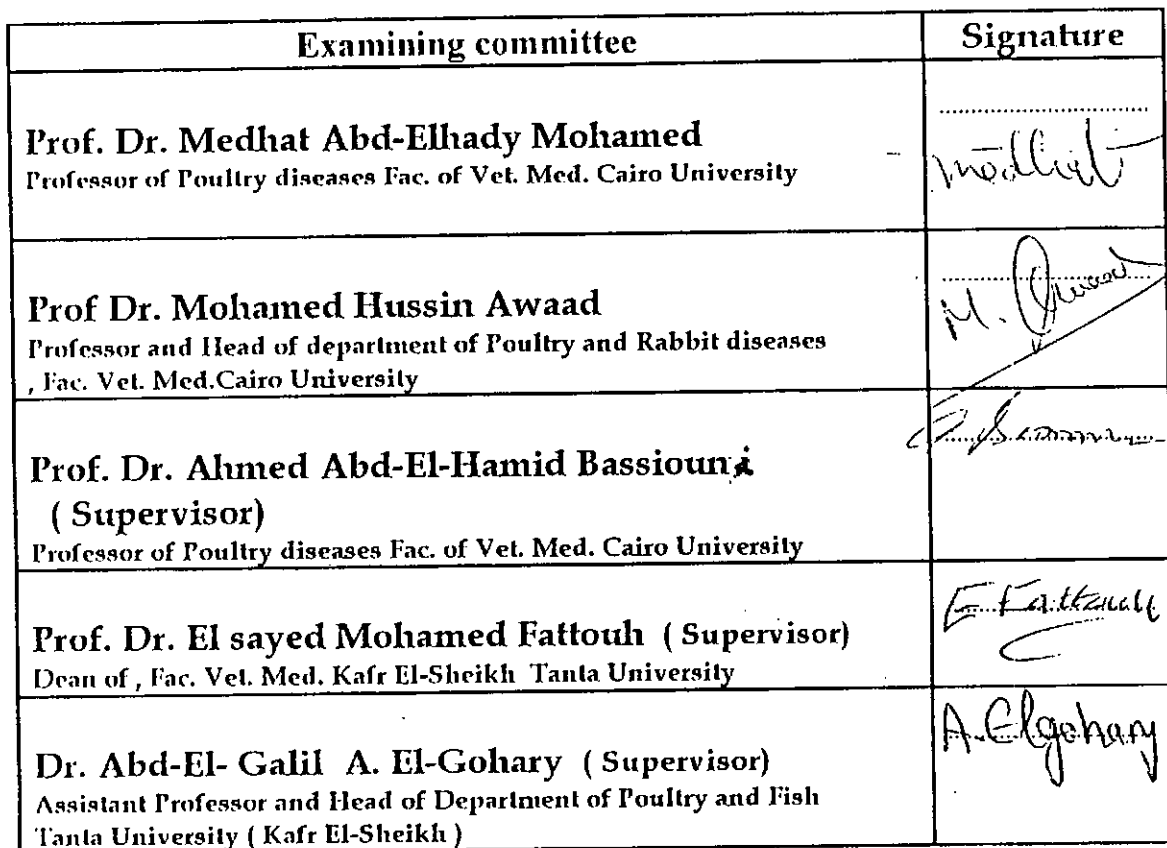 Examining committee
Signature
Prof. Dr. Medhat Abd-Elhady Mohamed
Professor of Poultry diseases Fac. of Vet. Med. Cairo University
Medhat
Prof Dr. Mohamed Hussin Awaad
Professor and Head of department of Poultry and Rabbit diseases
, Fac. Vet. Med.Cairo University
M. Awaad
Prof. Dr. Ahmed Abd-El-Hamid Bassiouni
( Supervisor)
Professor of Poultry diseases Fac. of Vet. Med. Cairo University
Prof. Dr. El sayed Mohamed Fattouh ( Supervisor)
Dean of , Fac. Vet. Med. Kafr El-Sheikh Tanta University
E. Fattouh
Dr. Abd-El- Galil A. El-Gohary ( Supervisor)
Assistant Professor and Head of Department of Poultry and Fish
Tanta University ( Kafr El-Sheikh )
A. Elgohary